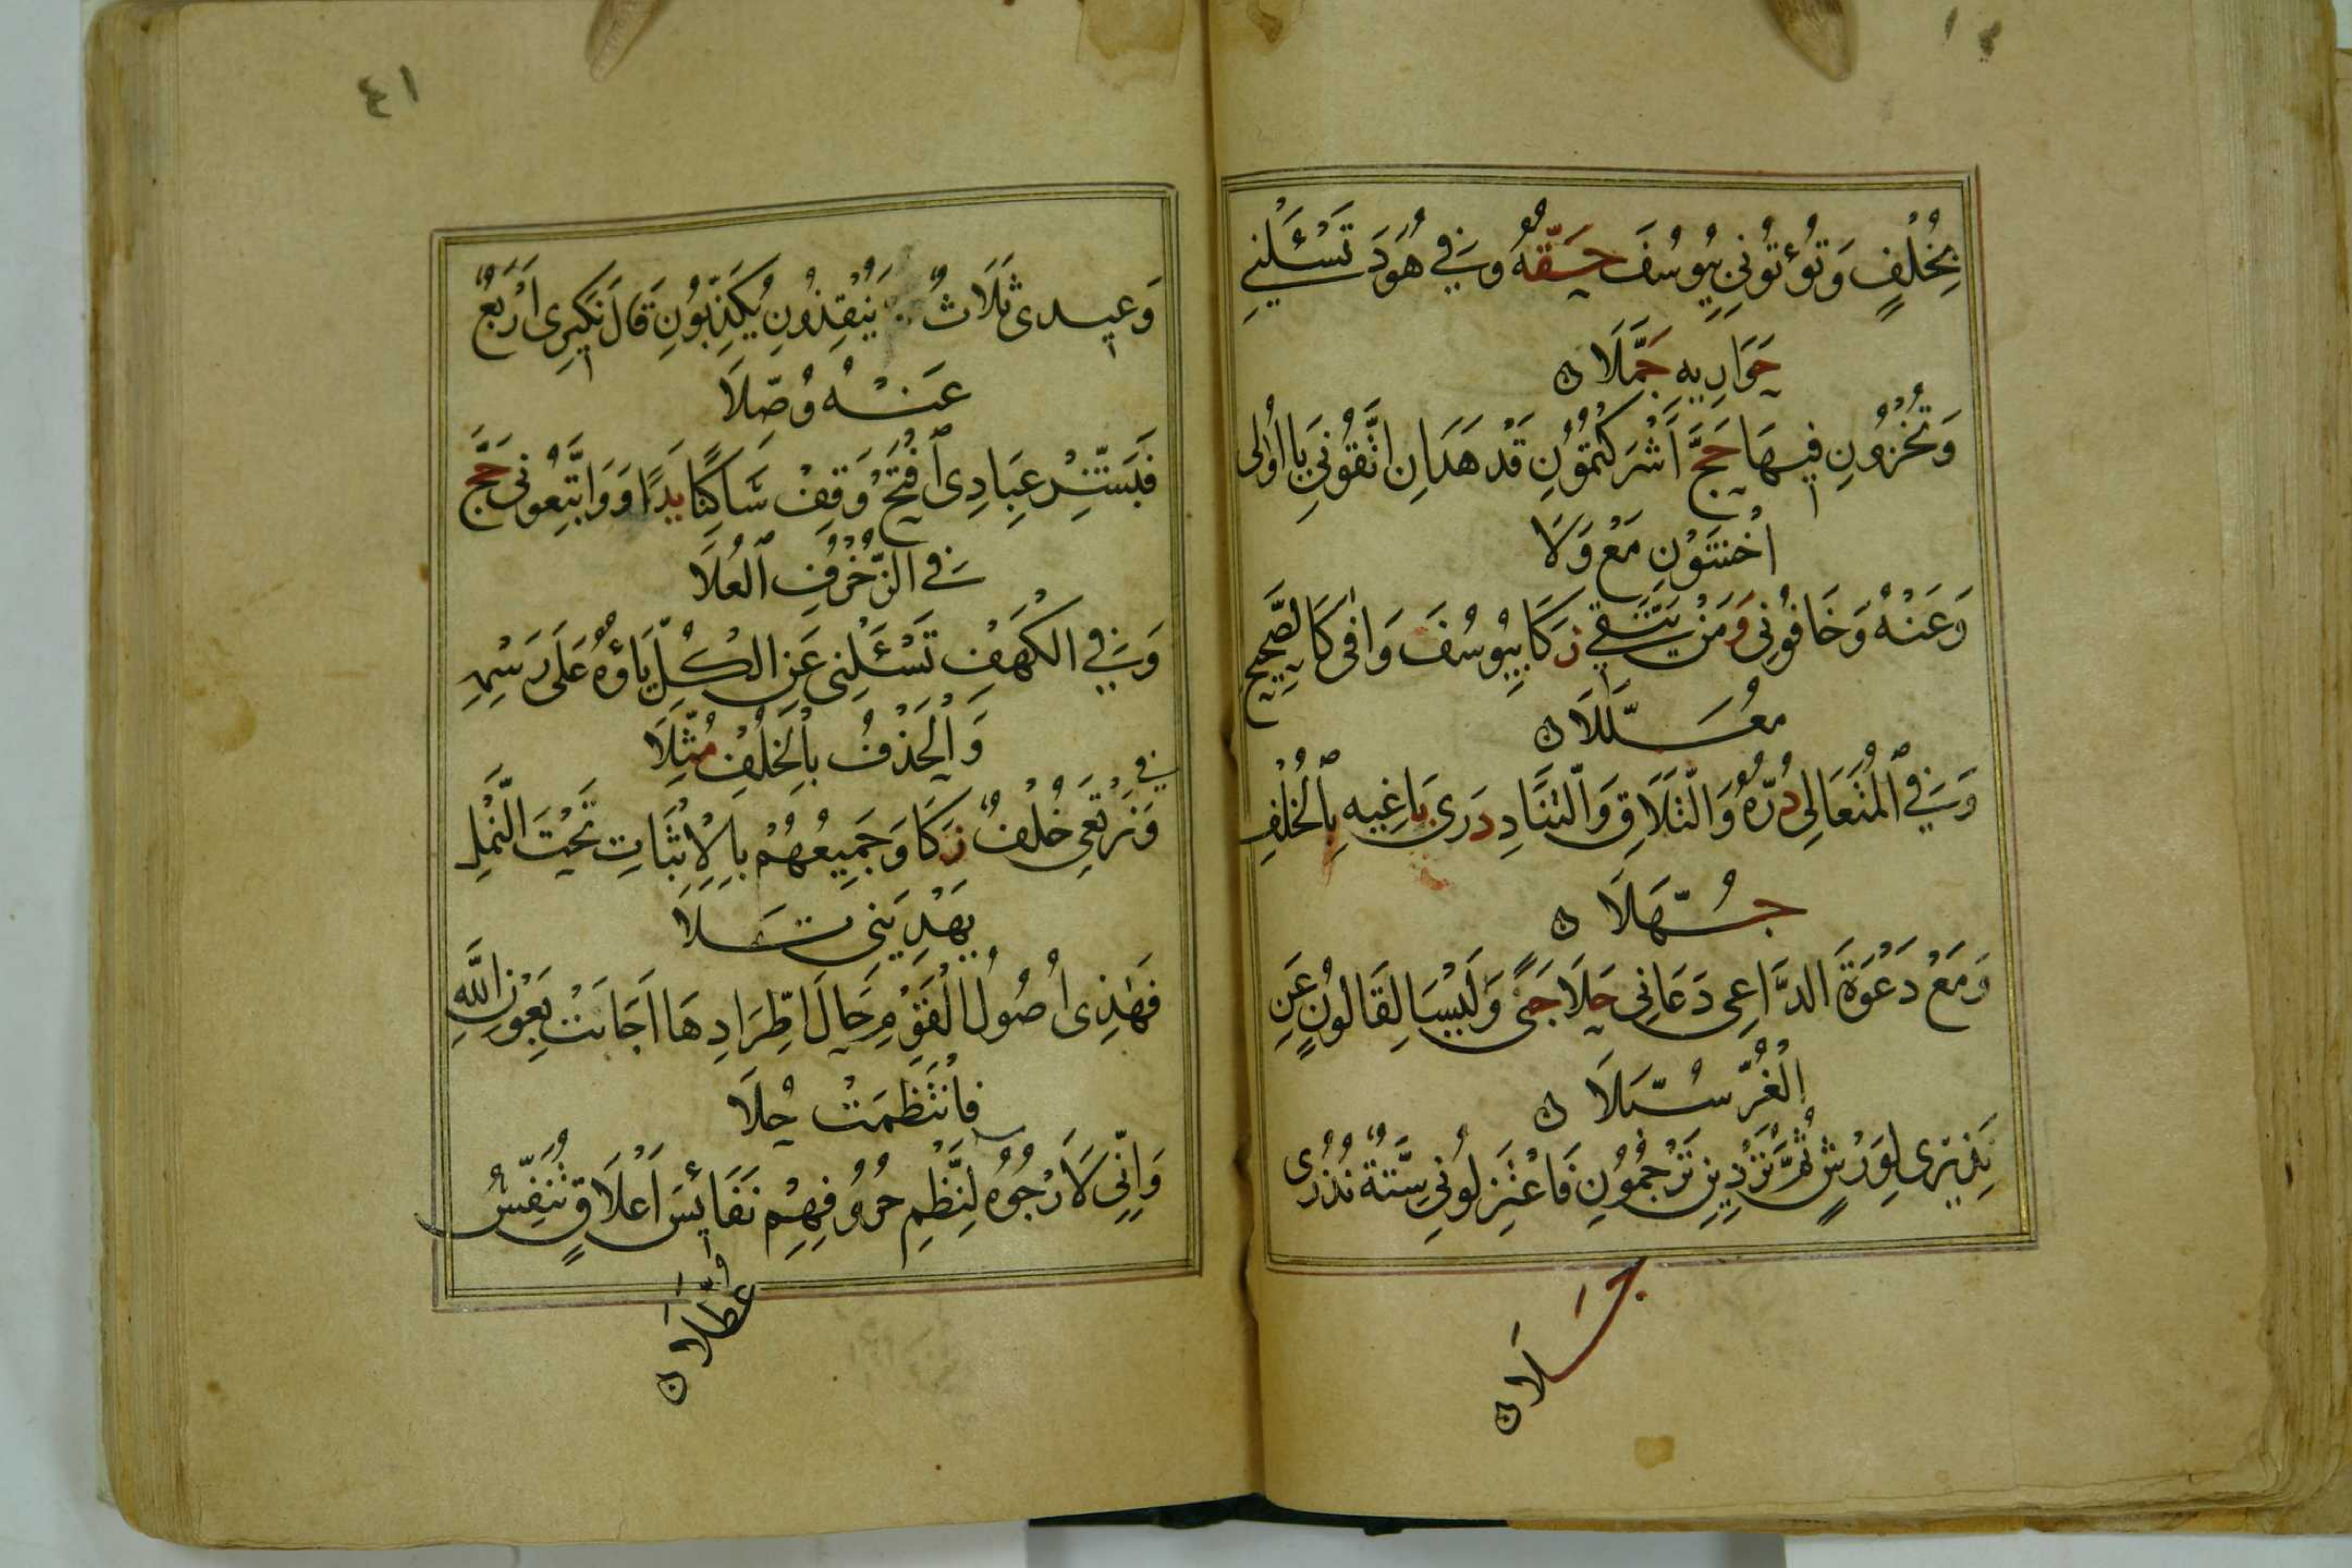 بِخُلْفٍ وَتُؤْتُونِي بِيُوسُفَ حَقُّهُ وَفِي هُودَ تَسْئَلْنِي
حَوَارِيهِ جَمَّلَا ن
وَتُخْزُونِ فِيهَا حَجَّ أَشْرَكْتُمُونِ قَدْ هَدَانِ اتَّقُونِي يَا أُولِي
اخْشَوْنِ مَعْ وَلَا
وَعَنْهُ وَخَافُونِي وَمَنْ يَتَّقِي زَكَا بِيُوسُفَ وَافَى كَالصَّحِيحِ
مُعَلَّلَا ن
وَفِي الْمُتَعَالِي دُرُّهُ وَالتَّلَاقِ وَالتَّنَادِ دَرَى بَاغِيهِ بِالْخُلْفِ
جُهَّلَا ن
وَمَعْ دَعْوَةَ الدَّاعِي دَعَانِي حَلَا جَنًى وَلَيْسَا لِقَالُونٍ عَنِ
الْغُرِّ سُبَّلَا ن
نَذِيرِي لِوَرْشٍ ثُمَّ تُرْدِينِ تَرْجُمُونِ فَاعْتَزِلُونِي سِتَّةٌ نُذُرِي
جَلَا ن
٤١
وَعِيدِي ثَلَاثٌ يُنْقِذُونِ يُكَذِّبُونِ قَالَ نَكِيرِي أَرْبَعٌ
عَنْهُ وُصِّلَا
فَبَشِّرْ عِبَادِي افْتَحْ وَقِفْ سَاكِنًا يَدًا وَوَاتَّبِعُونِي حَجَّ
فِي الزُّخْرُفِ الْعُلَا
وَفِي الْكَهْفِ تَسْئَلْنِي عَنِ الْكُلِّ يَاؤُهُ عَلَى رَسْمِهِ
وَالْحَذْفُ بِالْخُلْفِ مُثِّلَا
فِي
وَنَرْتَعِي خُلْفٌ زَكَا وَجَمِيعُهُمْ بِالْإِثْبَاتِ تَحْتَ النَّمْلِ
يَهْدِيَنِي تَلَا
فَهَذِي أُصُولُ الْقَوْمِ حَالَ اطِّرَادِهَا أَجَابَتْ بِعَوْنِ اللَّهِ
فَانْتَظَمَتْ حُلَا
وَإِنِّي لَأَرْجُوهُ لِنَظْمِ حُرُوفِهِمْ نَفَائِسَ أَعْلَاقٍ تُنَفِّسُ
عُطَّلَا ن